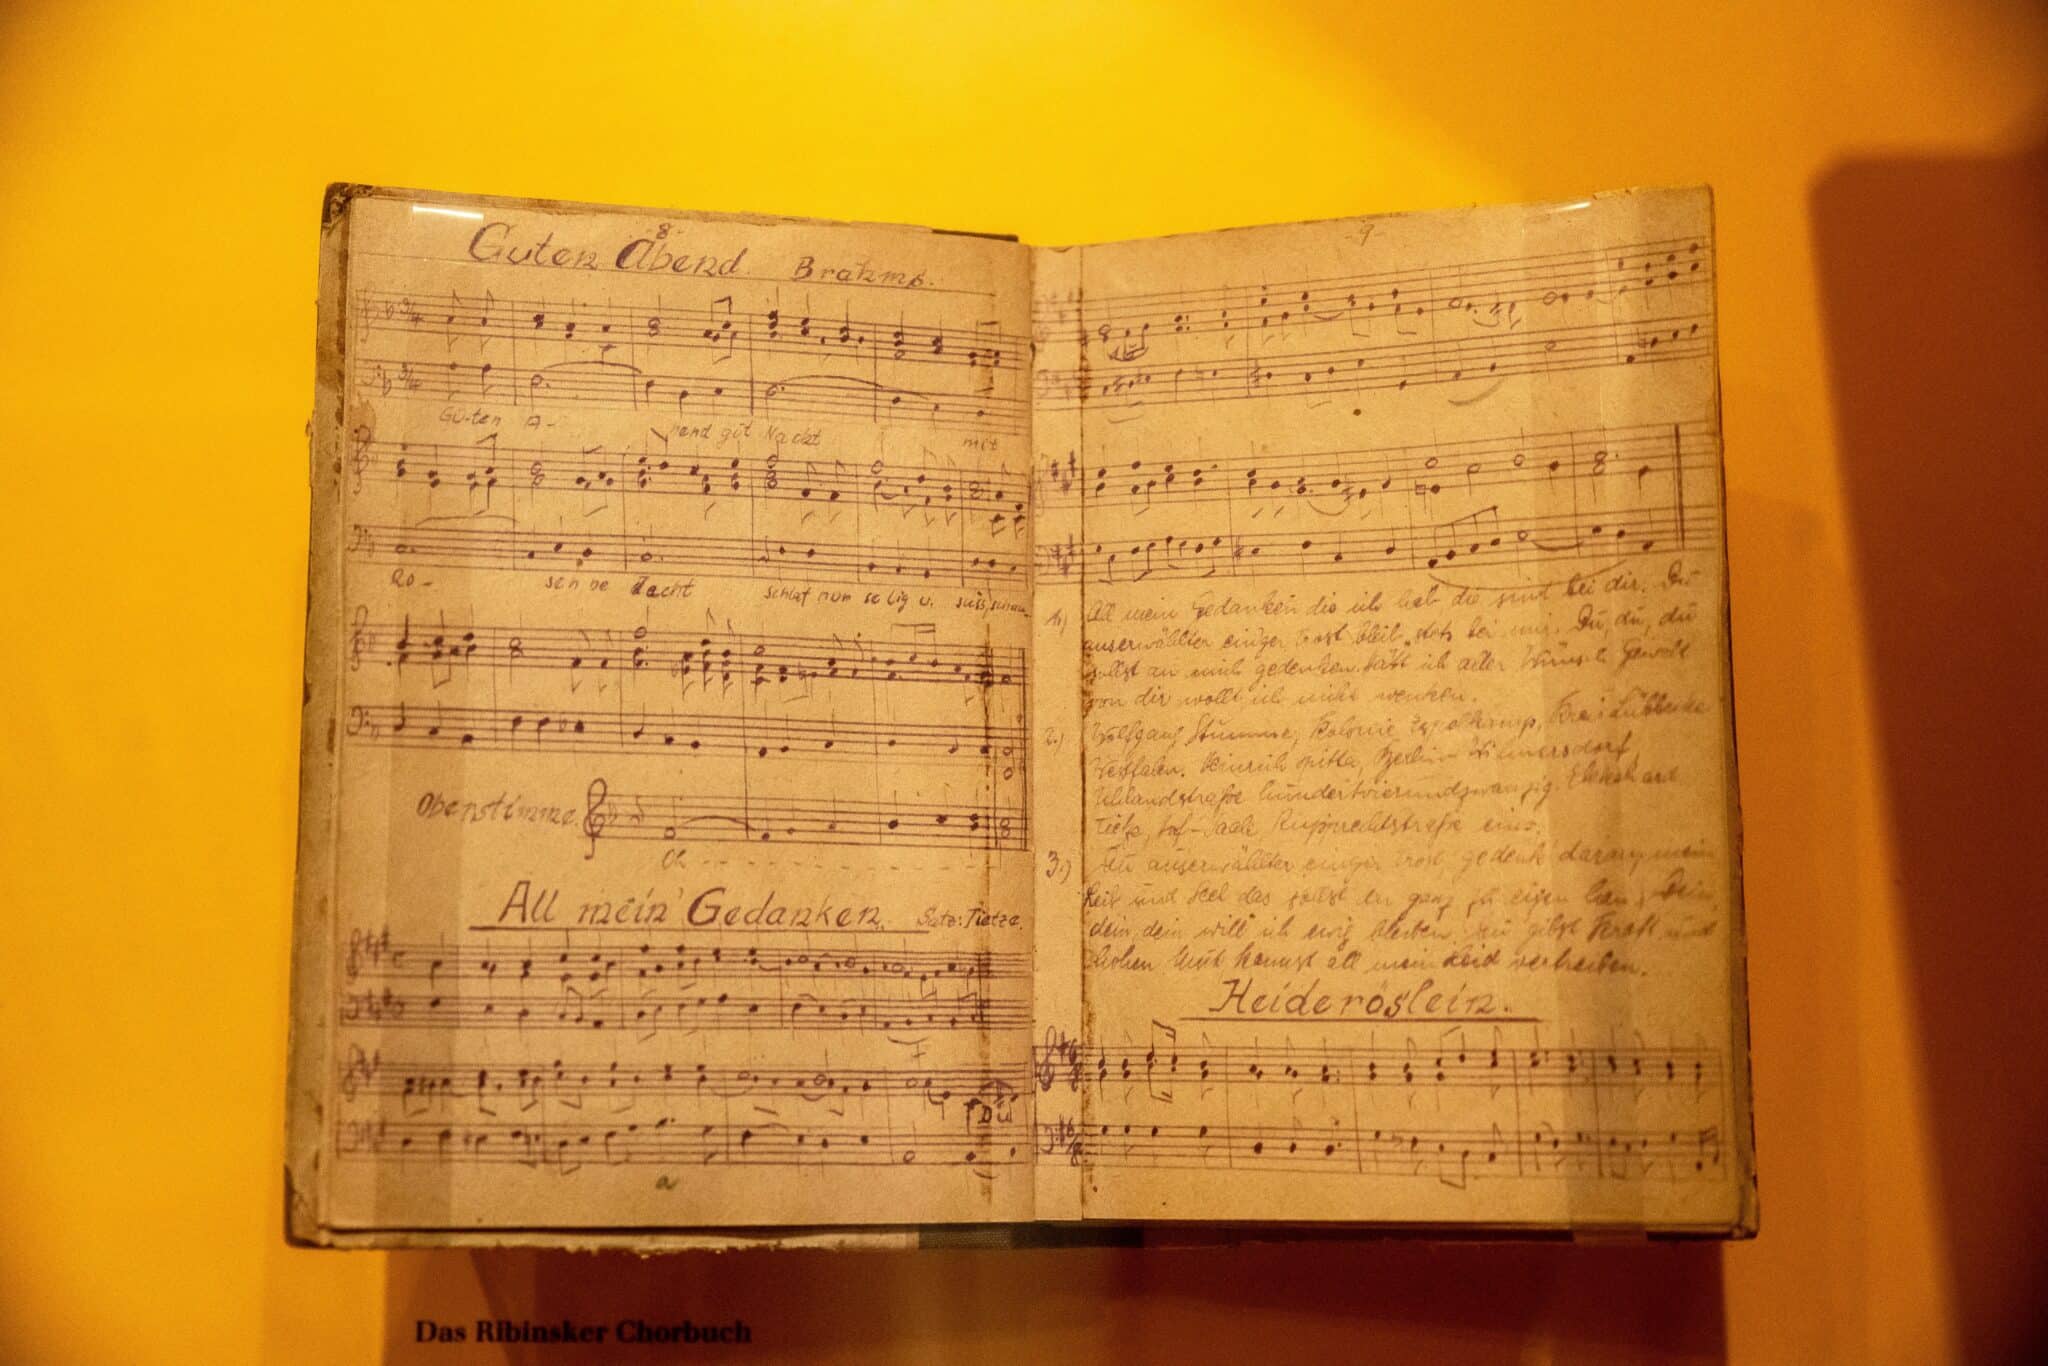 -8-
Guten Abend. Brahms.
3/4
3/4
Gu-ten A- bend gut Nacht mit
Ro- sen be dacht schlaf nun se lig u. süss, schau
Oberstimme.
Oh
All mein' Gedanken. Satz: Tietze.
Du
a
-9-
1.) All mein Gedanken die ich hab die sind bei dir. Du
auserwählter einiger Trost bleib stets bei mir. Du, du, du
sollst an mich gedenken. Hätt ich aller Wünsch Gewalt
von dir wollt ich nicht wenken.
2.) Wolfgang Stumme, Kolonie Espelkamp, Kreis Lübbecke
Westfalen. Heinrich Spitta, Berlin-Wilmersdorf,
Uhlandstraße hundertvierundzwanzig. Ekkehard
Tietze, Hof-Saale Rupprechtstraße eins.
3.) Du auserwählter einiger Trost, gedenk daran, mein
Leib und Seel das sollst du ganz zu eigen han. Dein,
dein, dein will ich ewig bleiben. Du gibst Kraft und
hohen Mut kannst all mein Leid vertreiben.
Heideröslein.
6/8
6/8
Das Ribinsker Chorbuch